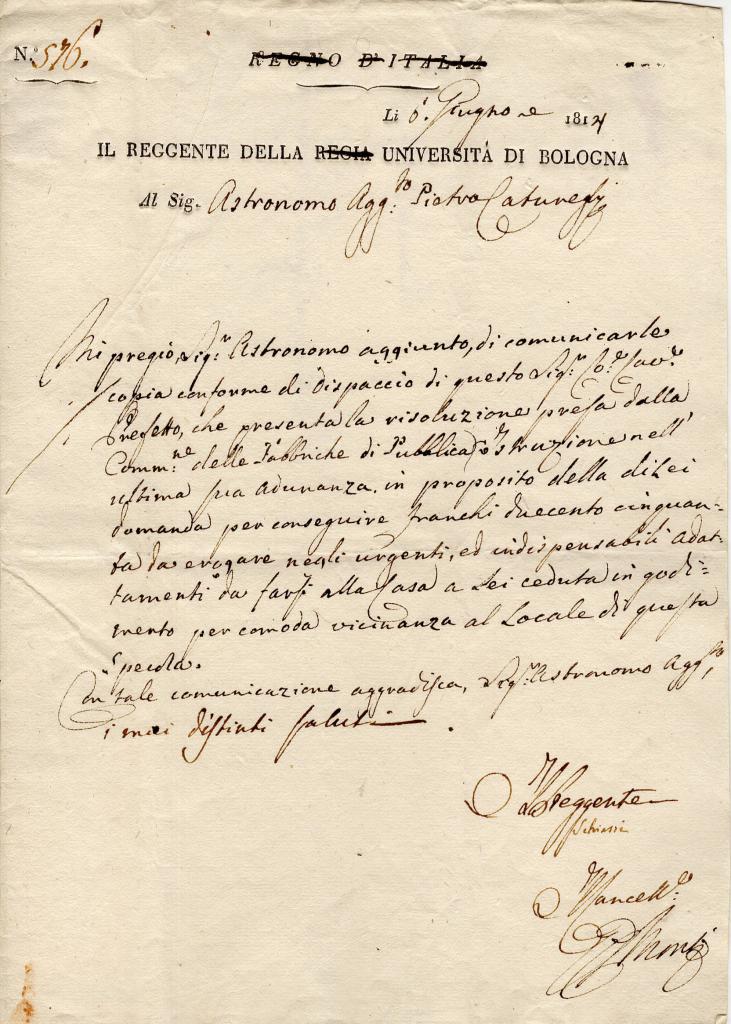 N.° 576.
REGNO D' ITALIA
Li 6. Giugno 1814
IL REGGENTE DELLA REGIA UNIVERSITÁ DI BOLOGNA
Al Sig. Astronomo Agg.to Pietro Caturegli
Mi pregio, Sig.r Astronomo aggiunto, di comunicarle
copia conforme di Dispaccio di questo Sig.r Co.e Cav.e
Prefetto, che presenta la risoluzione presa dalla
Comm.ne delle Fabbriche di Pubblica Istruzione nell'
ultima sua adunanza, in proposito della di Lei
domanda per conseguire franchi duecento cinquan=
ta da erogare negli urgenti, ed indispensabili adat=
tamenti da farsi alla Casa a Lei ceduta in godi=
mento per comoda vicinanza al Locale di questa
Specola.
Con tale comunicazione aggradisca, Sig.r Astronomo Agg.to,
i miei distinti saluti.
Il Reggente
Schiassi
Il Cancell.e
Monti